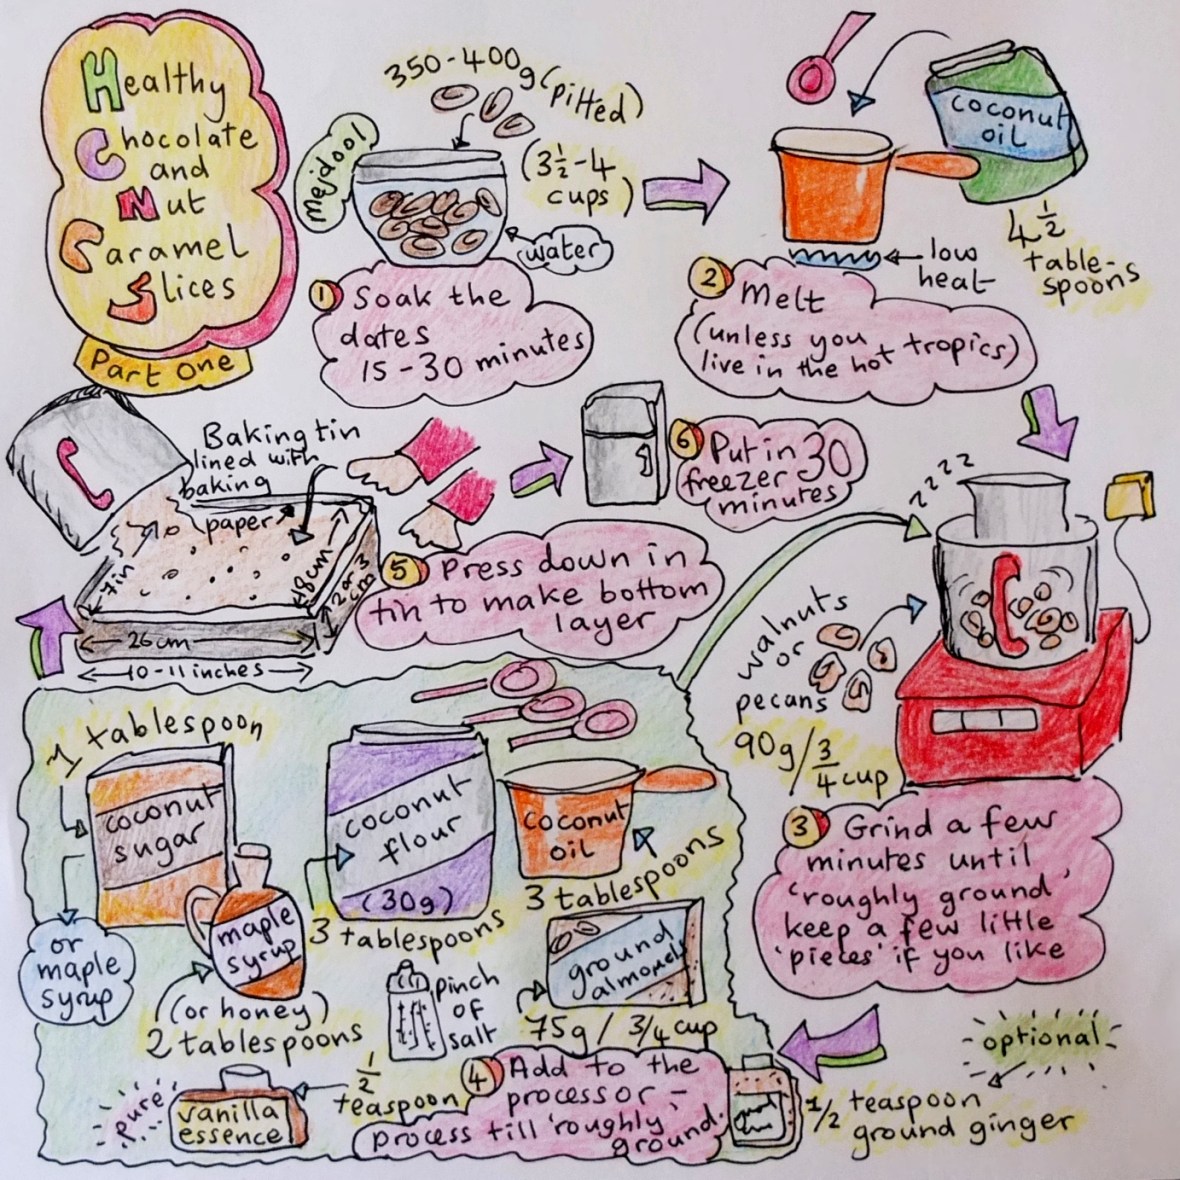 Healthy
Chocolate
and
Nut
Caramel
Slices
Part One
350-400g (pitted)
(3½-4
cups)
Mejdool
water
1 Soak the
dates
15-30 minutes
coconut
oil
4½
table-
spoons
low
heat
2 Melt
(unless you
live in the hot tropics)
zzzz
walnuts
or
pecans
90g/¾ cup
3 Grind a few
minutes until
'roughly ground'
keep a few little
'pieces' if you like
optional
1/2 teaspoon
ground ginger
1 tablespoon
coconut
sugar
or
maple
syrup
maple
syrup
(or honey)
2 tablespoons
coconut
flour
(30g)
3 tablespoons
coconut
oil
3 tablespoons
ground
almonds
75g / 3/4 cup
pinch
of
salt
pure
vanilla
essence
½
teaspoon
4 Add to the
processor -
process till 'roughly
ground'
Baking tin
lined with
baking
paper
7in
18cm
2 or 3
cm
26cm
10-11 inches
5 Press down in
tin to make bottom
layer
6 Put in 30
freezer
minutes